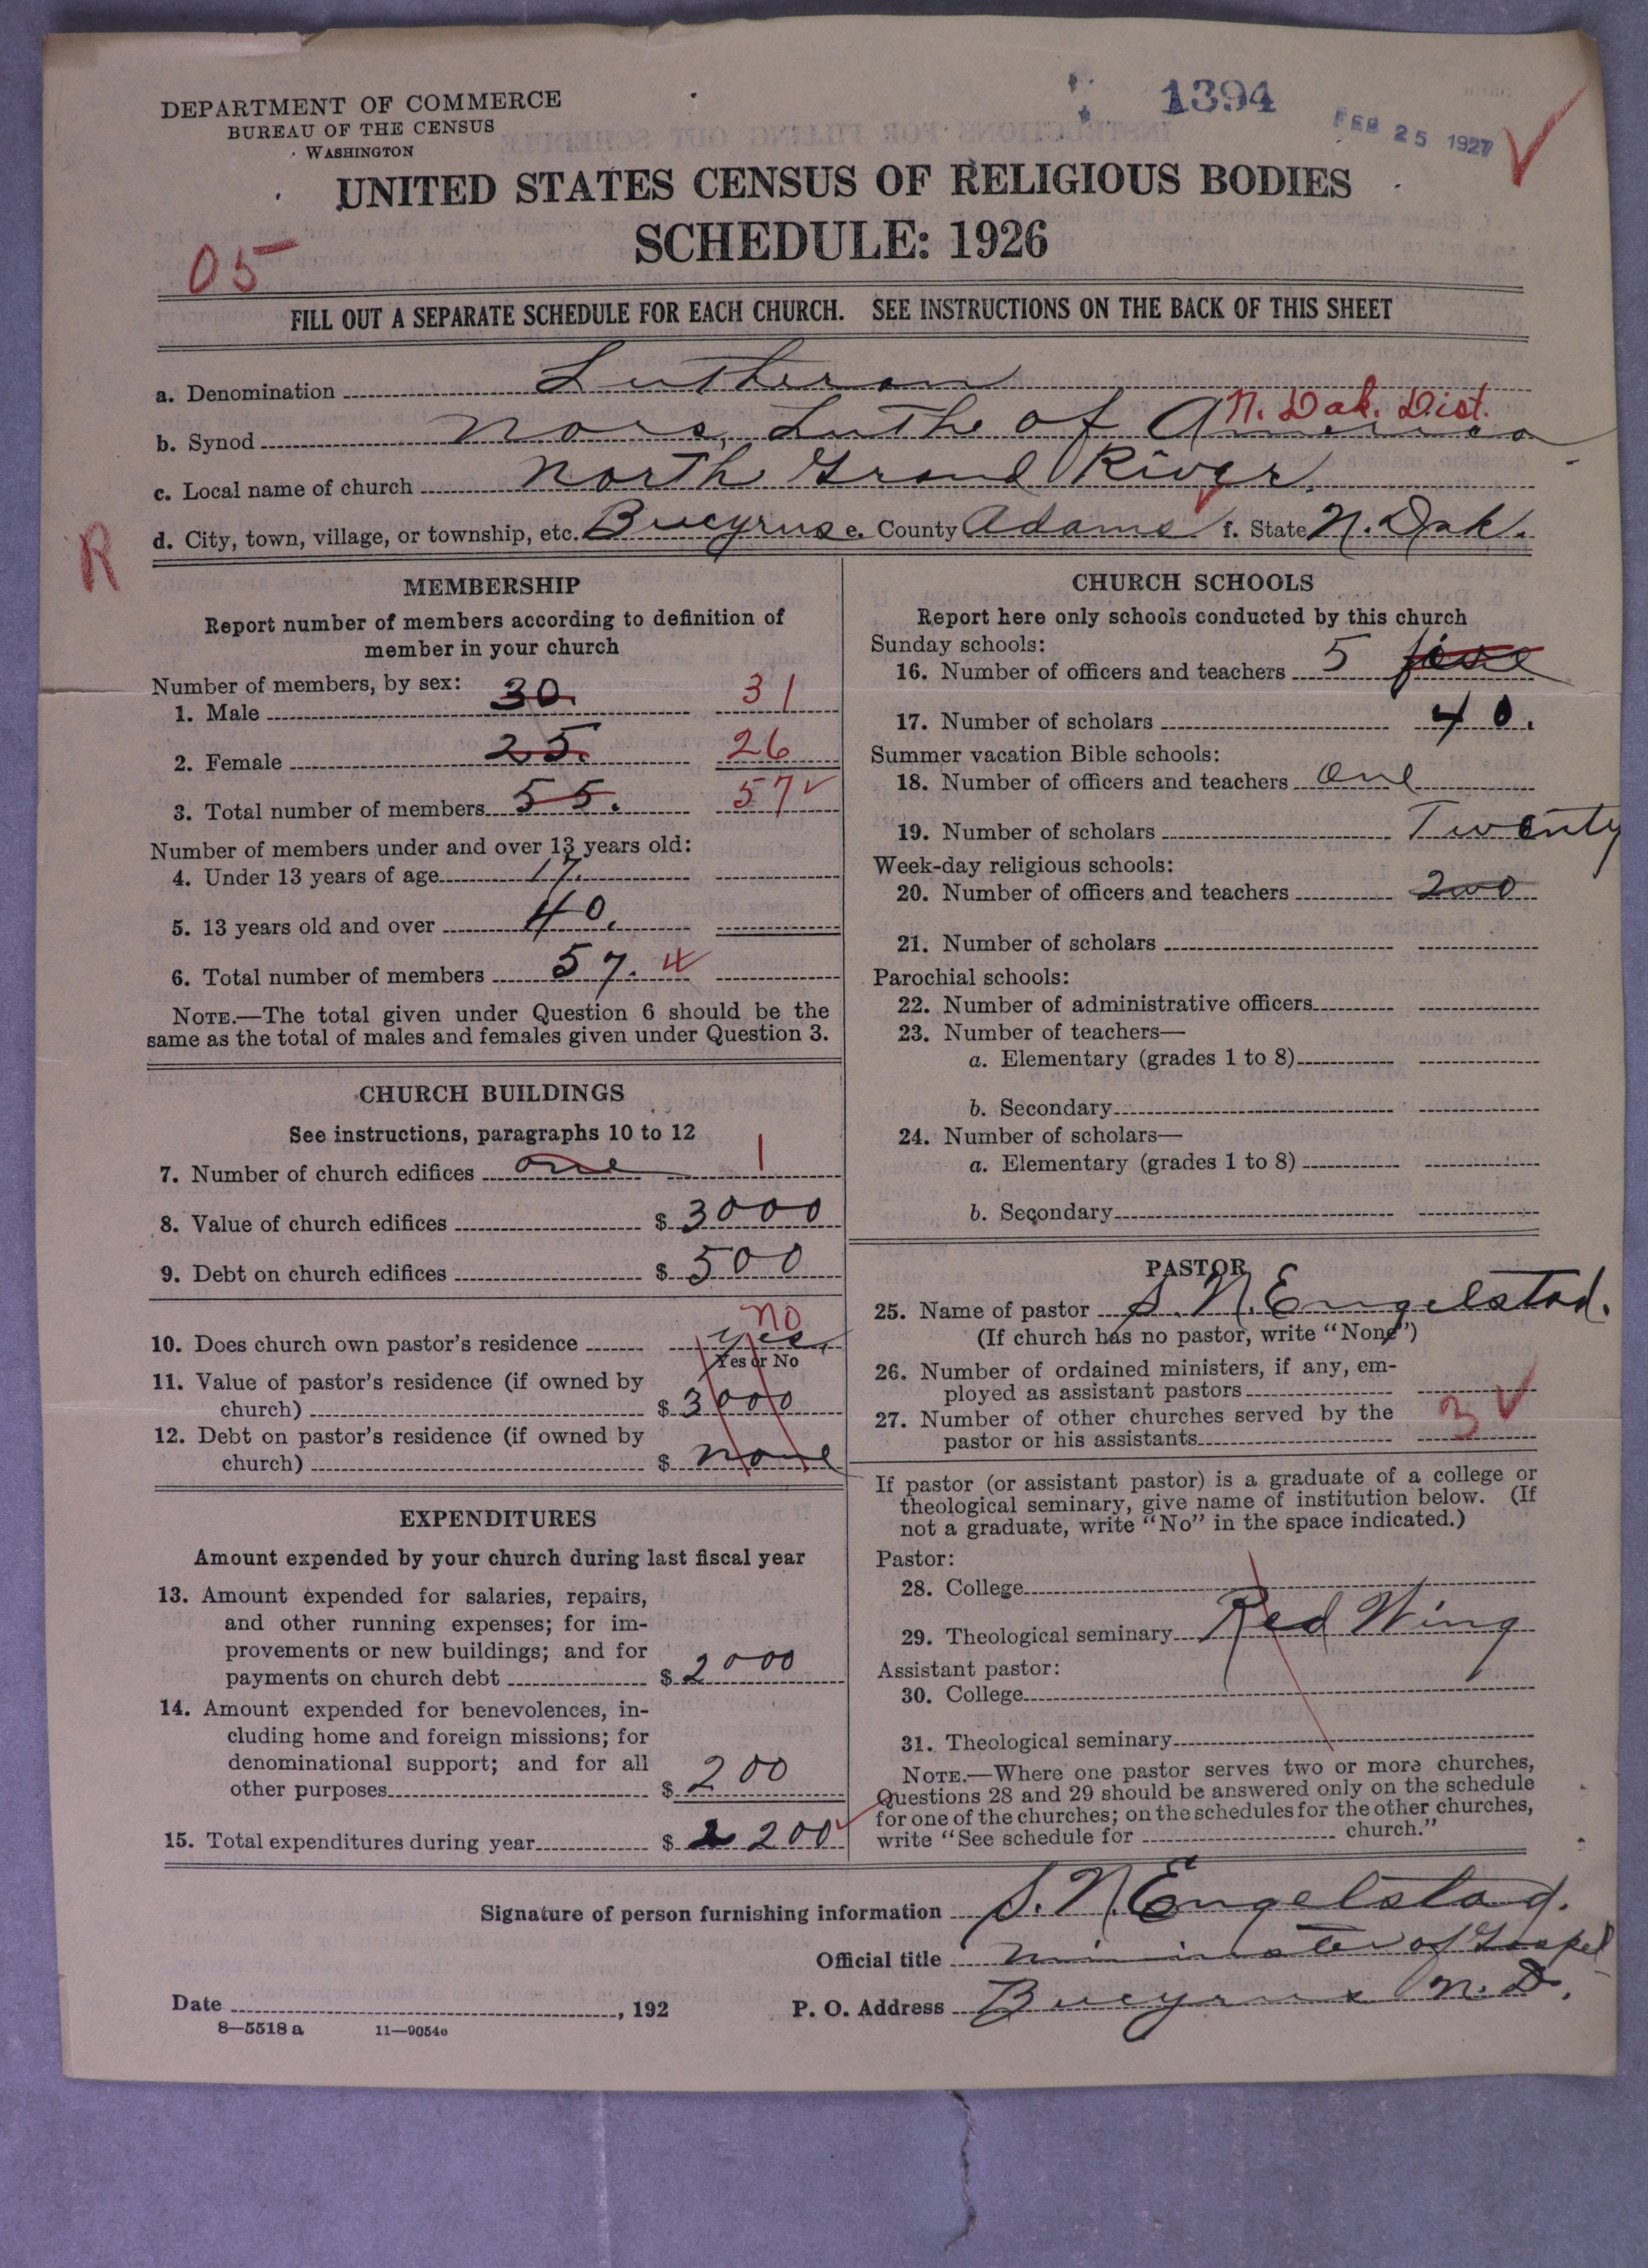 1394
FEB 25 1927
DEPARTMENT OF COMMERCE
BUREAU OF THE CENSUS
WASHINGTON
UNITED STATES CENSUS OF RELIGIOUS BODIES
SCHEDULE: 1926
05
FILL OUT A SEPARATE SCHEDULE FOR EACH CHURCH. SEE INSTRUCTIONS ON THE BACK OF THIS SHEET
a. Denomination Lutheran
N. Dak. Dist.
b. Synod Nors. Luthe of America
c. Local name of church North Grand River.
R
d. City, town, village, or township, etc. Bucyrus e. County Adams f. State N. Dak.
MEMBERSHIP
Report number of members according to definition of
member in your church
Number of members, by sex:
1. Male 30. 31
2. Female 25. 26
3. Total number of members 55. 57
Number of members under and over 13 years old:
4. Under 13 years of age 17.
5. 13 years old and over 40.
6. Total number of members 57. 4
NOTE.—The total given under Question 6 should be the
same as the total of males and females given under Question 3.
CHURCH BUILDINGS
See instructions, paragraphs 10 to 12
7. Number of church edifices one 1
8. Value of church edifices $ 3000
9. Debt on church edifices $ 500
no
10. Does church own pastor's residence yes
Yes or No
11. Value of pastor's residence (if owned by
church) $ 3000
12. Debt on pastor's residence (if owned by
church) $ none
EXPENDITURES
Amount expended by your church during last fiscal year
13. Amount expended for salaries, repairs,
and other running expenses; for im-
provements or new buildings; and for
payments on church debt $ 2000
14. Amount expended for benevolences, in-
cluding home and foreign missions; for
denominational support; and for all
other purposes $ 200
15. Total expenditures during year $ 2200
CHURCH SCHOOLS
Report here only schools conducted by this church
Sunday schools:
16. Number of officers and teachers 5 five
17. Number of scholars 40.
Summer vacation Bible schools:
18. Number of officers and teachers One
19. Number of scholars Twenty
Week-day religious schools:
20. Number of officers and teachers two
21. Number of scholars
Parochial schools:
22. Number of administrative officers
23. Number of teachers—
a. Elementary (grades 1 to 8)
b. Secondary
24. Number of scholars—
a. Elementary (grades 1 to 8)
b. Secondary
PASTOR
25. Name of pastor S. N. Engelstad.
(If church has no pastor, write "None")
26. Number of ordained ministers, if any, em-
ployed as assistant pastors
27. Number of other churches served by the
pastor or his assistants 3
If pastor (or assistant pastor) is a graduate of a college or
theological seminary, give name of institution below. (If
not a graduate, write "No" in the space indicated.)
Pastor:
28. College
29. Theological seminary Red Wing
Assistant pastor:
30. College
31. Theological seminary
NOTE.—Where one pastor serves two or more churches,
Questions 28 and 29 should be answered only on the schedule
for one of the churches; on the schedules for the other churches,
write "See schedule for church."
Signature of person furnishing information S. N. Engelstad.
Official title minister of Gospel
Date , 192
P. O. Address Bucyrus N. D.
8—5518 a 11—9054a